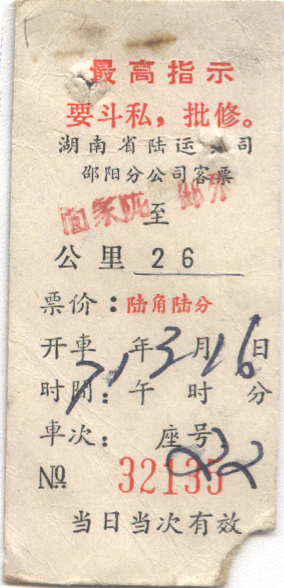 最高指示
要斗私，批修。
湖南省陆运公司
邵阳分公司客票
至
公里 26
票价：陆角陆分
开車 71年3月16日
时間：午 时 分
車次： 座号：22
№ 32135
当日当次有效